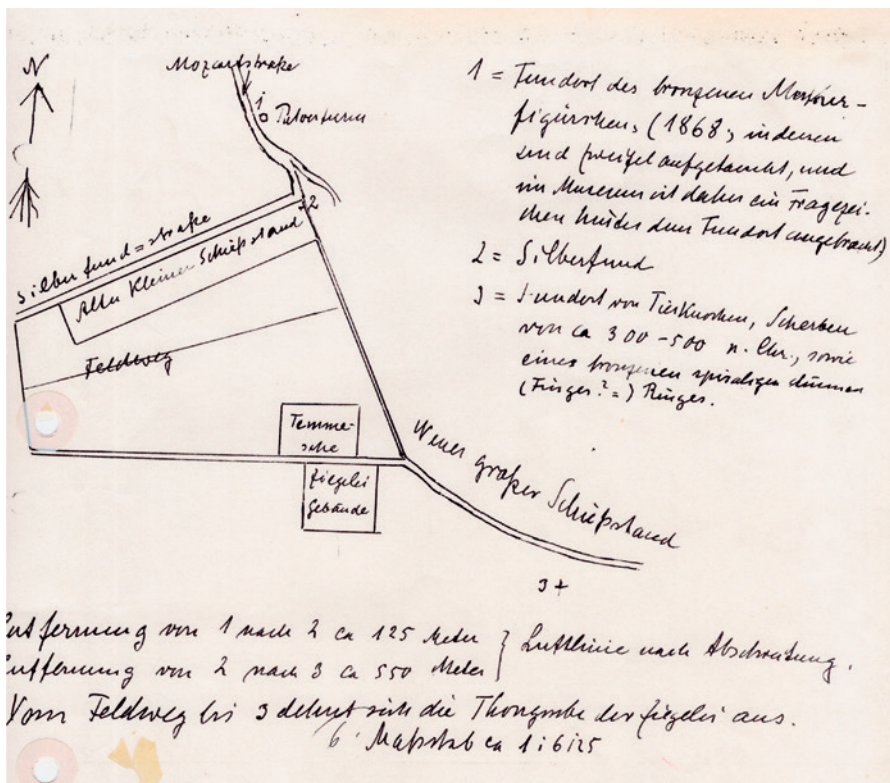 N
Mozartstraße
1
Pulverturm
2
Silberfund=straße
Alter Kleiner Schießstand
Feldweg
Temme-
sche
Ziegelei
gebäude
Neuer großer Schießstand
3 +
1 = Fundort des bronzenen
figürchens, (1868, indessen
sind Zweifel aufgetaucht, und
im Museum ist daher ein Fragezei-
chen hinter dem Fundort angebracht)
2 = Silberfund
3 = Fundort von Tierknochen, Scherben
von ca 300-500 n. Chr., sowie
eines bronzenen spiraligen dünnen
(Finger?=) Ringes.
Entfernung von 1 nach 2 ca 125 Meter } Luftlinie nach Abschreitung.
Entfernung von 2 nach 3 ca 550 Meter
Vom Feldweg bis 3 dehnt sich die Thongrube der Ziegelei aus.
Maßstab ca 1:6125